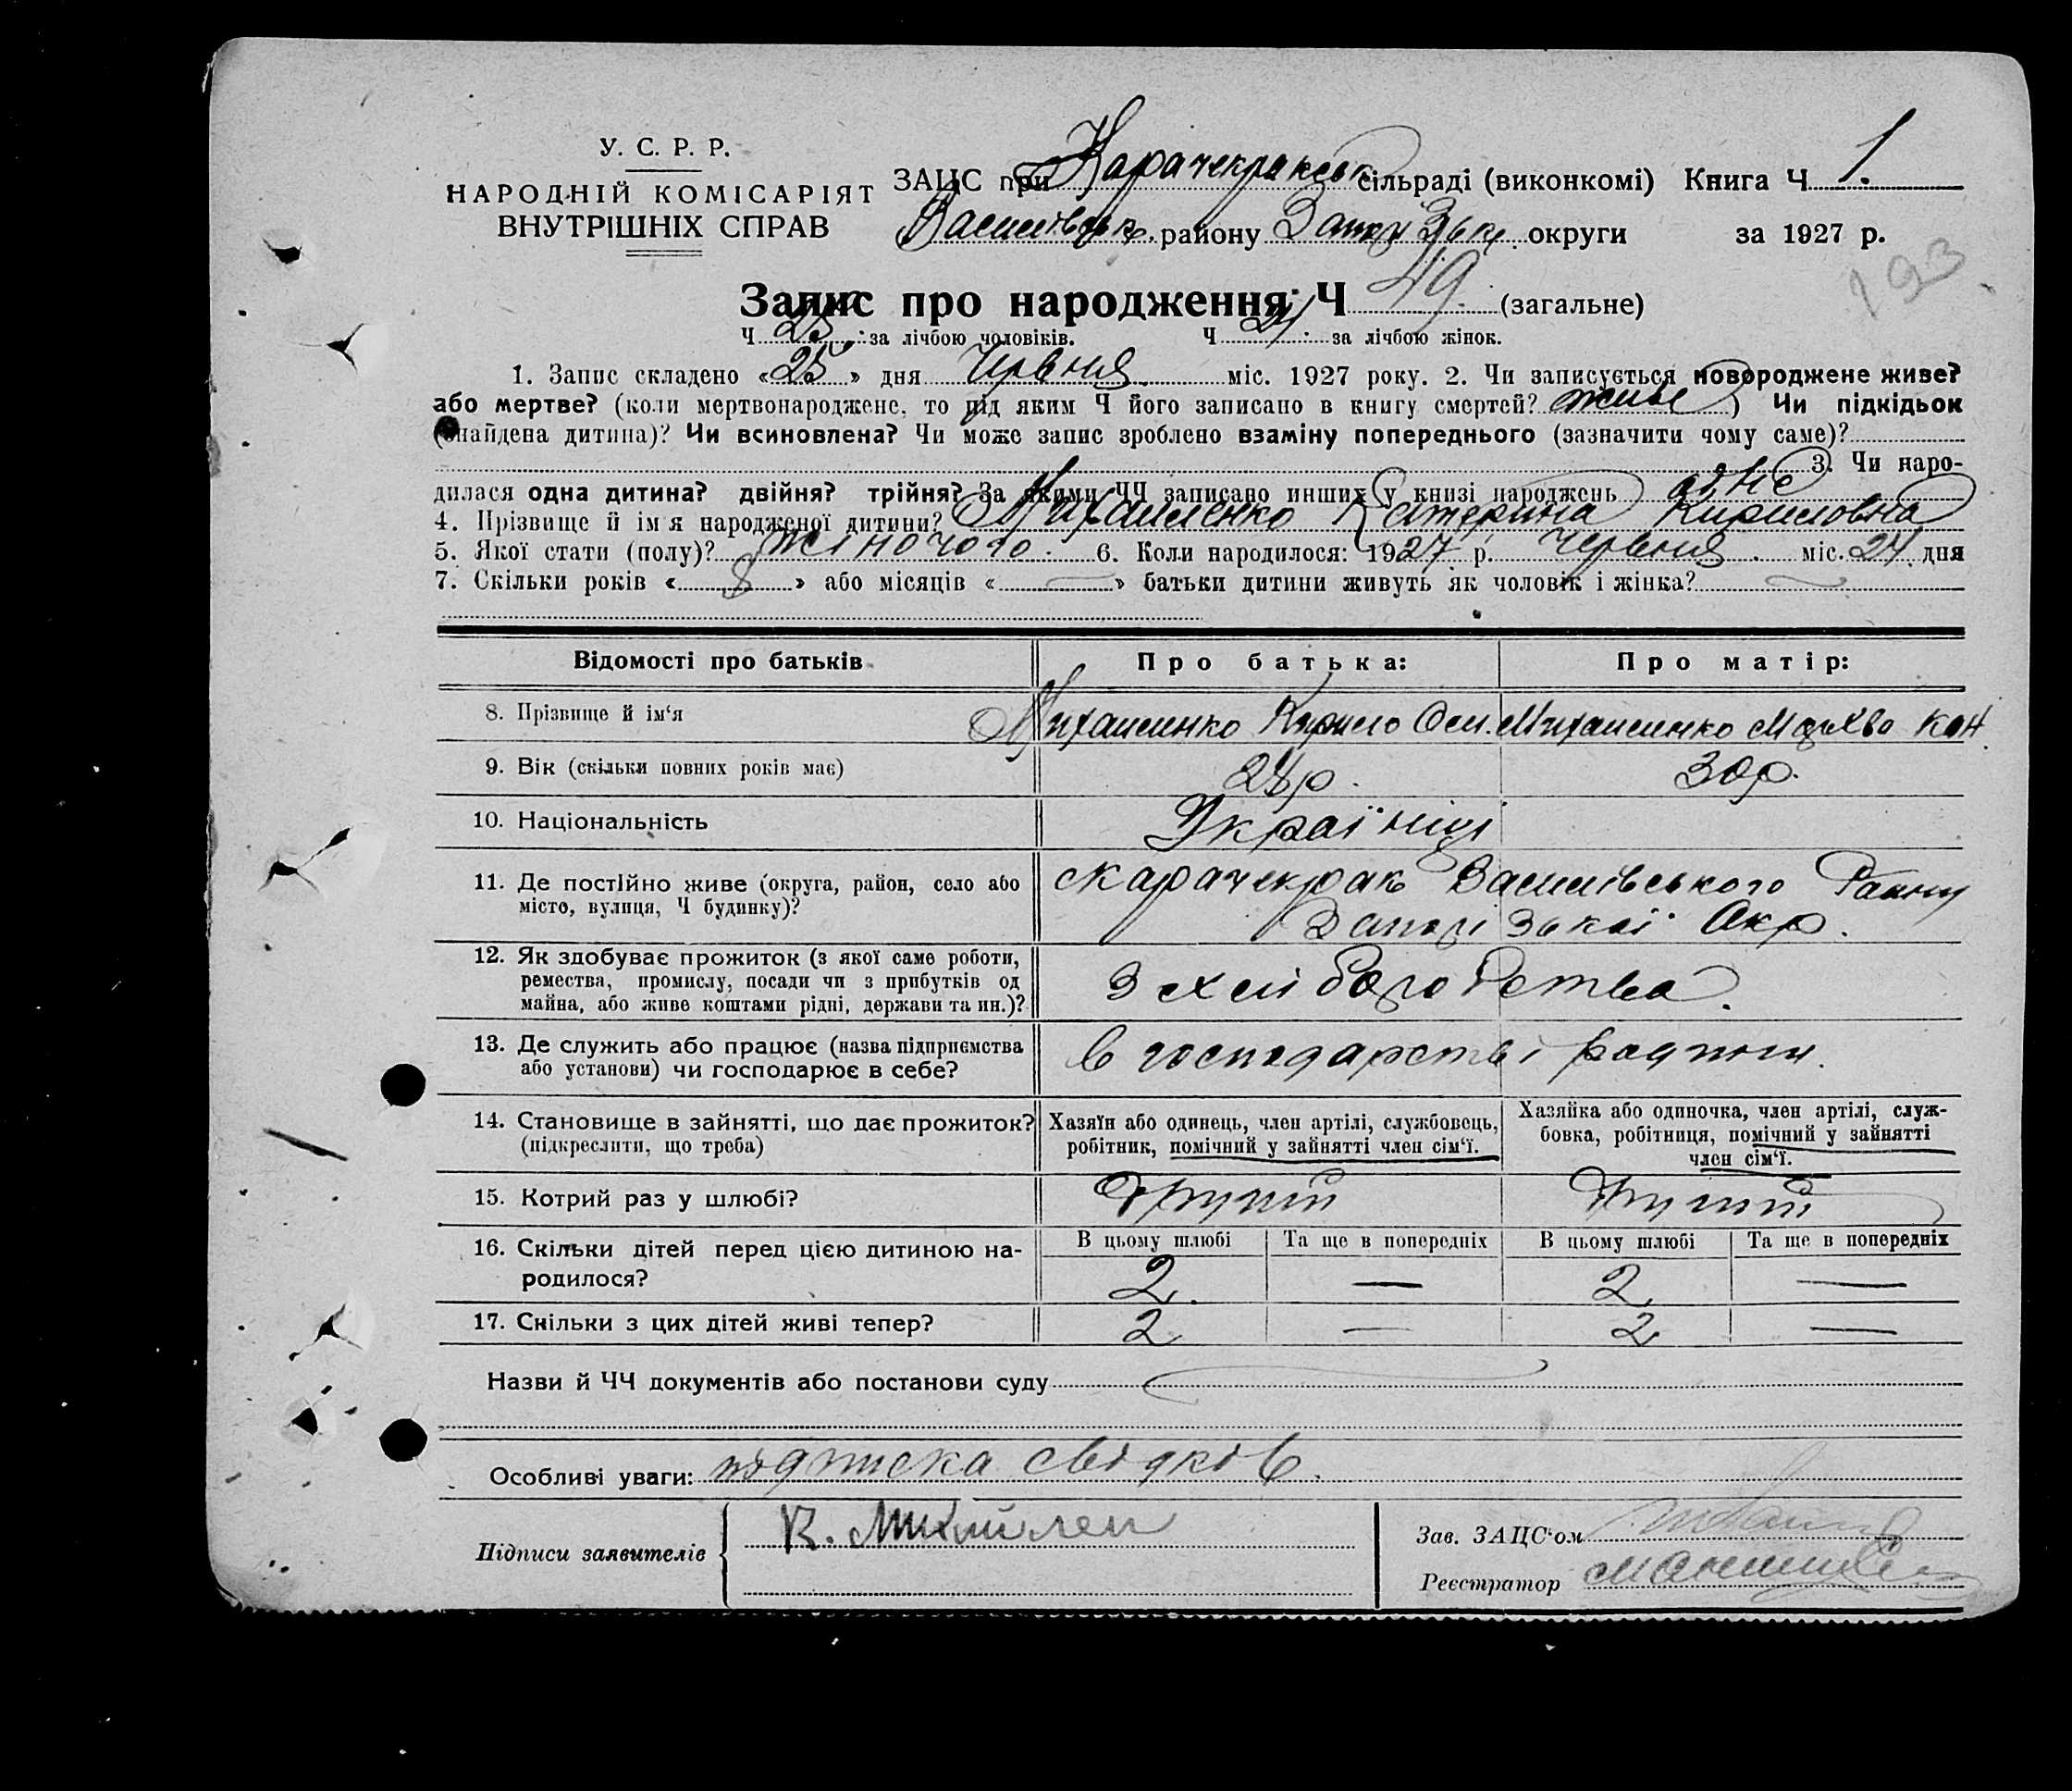 У. С. Р. Р.
НАРОДНІЙ КОМІСАРІЯТ
ВНУТРІШНІХ СПРАВ
ЗАЦС при Карачекракськ сільраді (виконкомі) Книга Ч 1.
Василівськ. району Запорізьк. округи за 1927 р.
193
Запис про народження Ч 49. (загальне)
Ч 25 за лічбою чоловіків. Ч 24 за лічбою жінок.
1. Запис складено «25» дня Червня міс. 1927 року. 2. Чи записується новороджене живе?
або мертве? (коли мертвонароджене, то під яким Ч його записано в книгу смертей? живе) Чи підкідьок
(знайдена дитина)? Чи всиновлена? Чи може запис зроблено взаміну попереднього (зазначити чому саме)?
3. Чи наро-
дилася одна дитина? двійня? трійня? За якими ЧЧ записано инших у книзі народжень одне
4. Прізвище й ім'я народженої дитини? Михайленко Катерина Кириловна
5. Якої стати (полу)? жіночого. 6. Коли народилося: 1927 р. червня. міс. 24 дня
7. Скільки років «8» або місяців «—» батьки дитини живуть як чоловік і жінка? —
Відомості про батьків Про батька: Про матір:
8. Прізвище й ім'я Михайленко Кирило Михайленко Кон.
9. Вік (скільки повних років має) 28р. 30р.
10. Національність Українці
11. Де постійно живе (округа, район, село або
місто, вулиця, Ч будинку)?
с Карачекрак Василівського Району
Запорізької Окр.
12. Як здобуває прожиток (з якої саме роботи,
ремества, промислу, посади чи з прибутків од
майна, або живе коштами рідні, держави та ин.)?
З хліборобства.
13. Де служить або працює (назва підприємства
або установи) чи господарює в себе?
в господарстві родини.
14. Становище в зайнятті, що дає прожиток?
(підкреслити, що треба)
Хазяїн або одинець, член артілі, службовець,
робітник, помічний у зайнятті член сім'ї.
Хазяйка або одиночка, член артілі, служ-
бовка, робітниця, помічний у зайнятті
член сім'ї.
15. Котрий раз у шлюбі? Другий Другий
16. Скільки дітей перед цією дитиною на-
родилося?
В цьому шлюбі Та ще в попередніх В цьому шлюбі Та ще в попередніх
2. — 2 —
17. Скільки з цих дітей живі тепер? 2 — 2 —
Назви й ЧЧ документів або постанови суду
Особливі уваги: підписка свідків.
Підписи заявителів К.
Зав. ЗАЦС'ом
Реєстратор